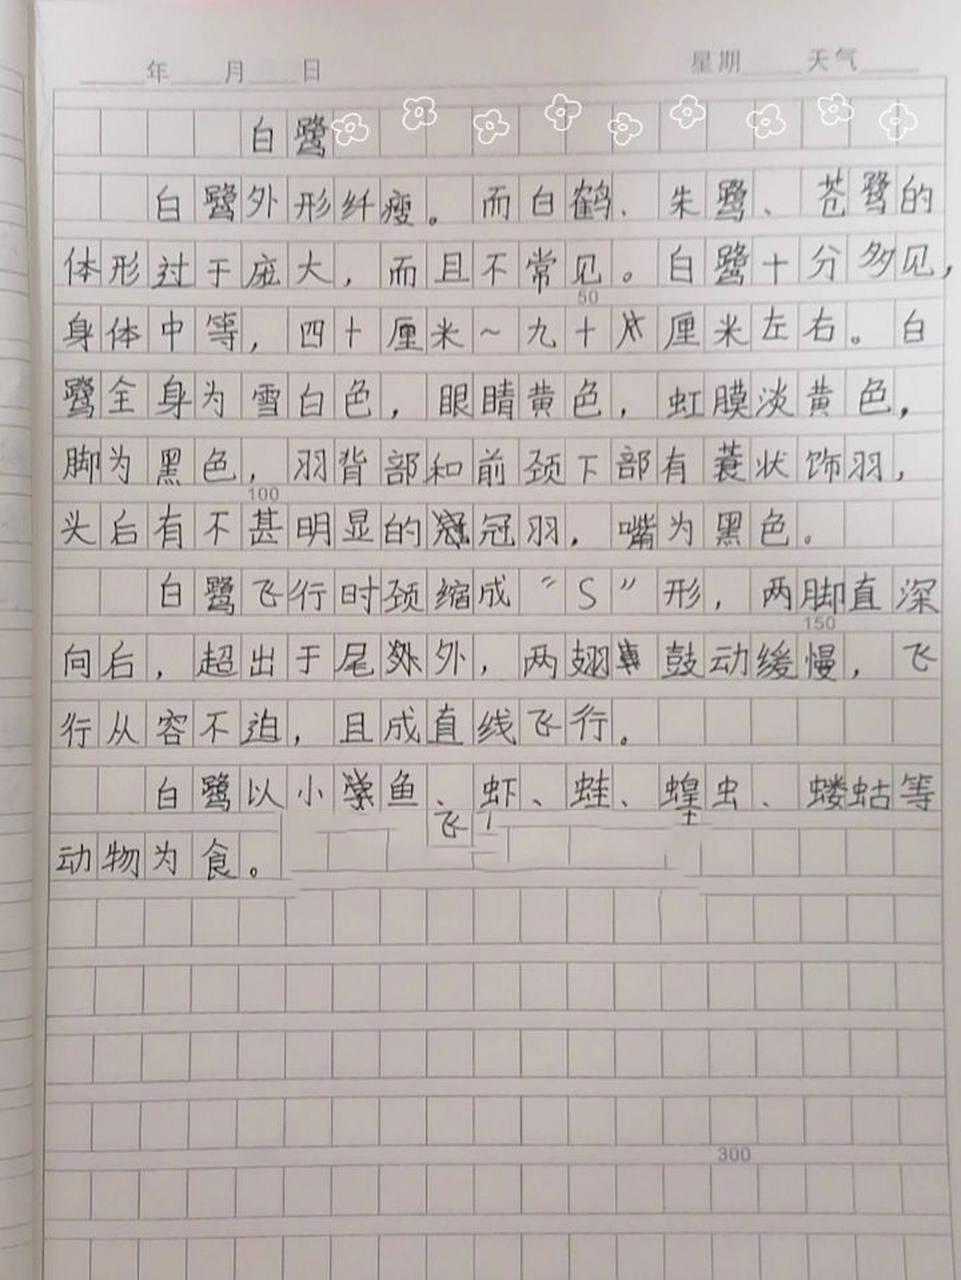 年 月 日 星期 天气
白鹭
白鹭外形纤瘦。而白鹤、朱鹭、苍鹭的
体形过于庞大，而且不常见。白鹭十分多见，
50
身体中等，四十厘米~九十厘米左右。白
鹭全身为雪白色，眼睛黄色，虹膜淡黄色，
脚为黑色，羽背部和前颈下部有蓑状饰羽，
100
头后有不甚明显的冠羽，嘴为黑色。
白鹭飞行时颈缩成“S”形，两脚直深
150
向后，超出于尾外，两翅鼓动缓慢，飞
行从容不迫，且成直线飞行。
白鹭以小鱼、虾、蛙、蝗虫、蝼蛄等
飞
动物为食。
300